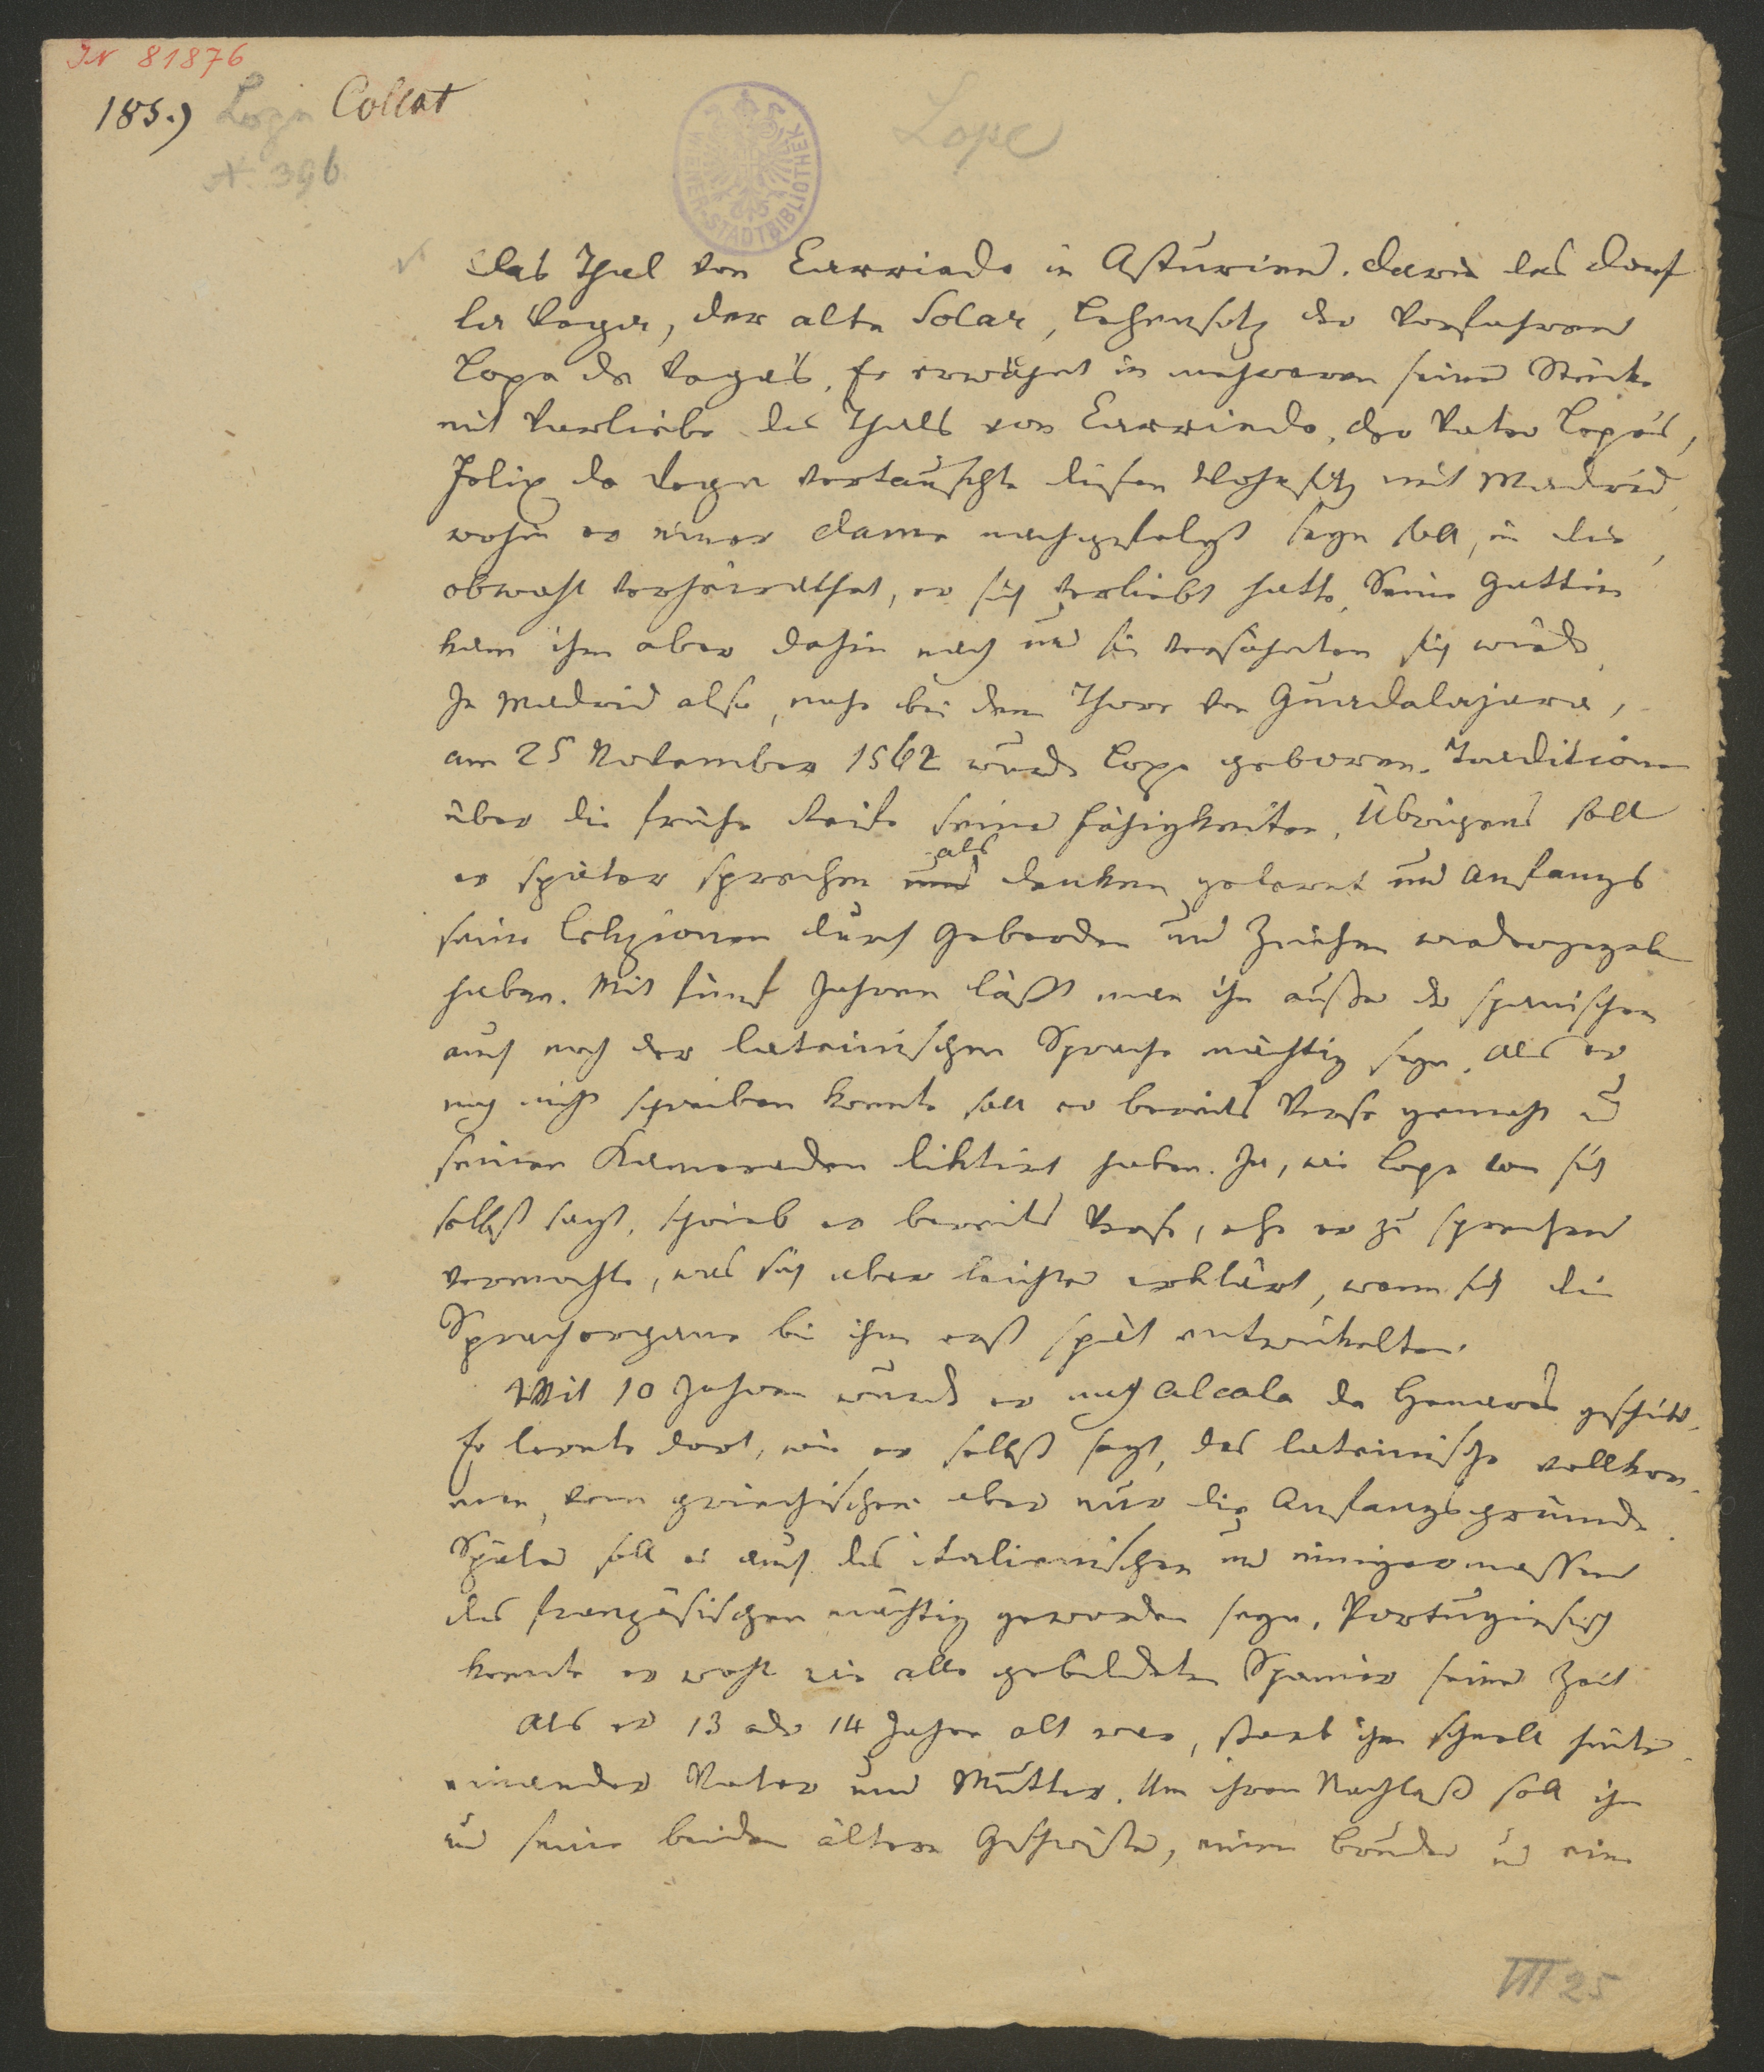 IN 81876
185.) Lope Collat
N. 396
Lope
WIENER STADTBIBLIOTHEK
Das Thal von Carriedo in Asturien. Darin das Dorf
la Vega, der alte Solar, Lehensitz der Vorfahren
Lope de Vegas. Er erwähnt in mehreren seiner Stücke
mit Vorliebe des Thals von Carriedo. Der Vater Lopes,
Felix de Vega vertauschte diesen Wohnsitz mit Madrid,
wohin er einer Dame nachgefolgt seyn soll, in die,
obwohl verheirathet, er sich verliebt hatte. Seine Gattin
kam ihm aber dahin nach und sie versöhnten sich wieder.
In Madrid also, nahe bei dem Thore von Guadalajara,
am 25 November 1562 wurde Lope geboren. Traditionen
über die frühe Reife seiner Fähigkeiten. Übrigens soll
als
er später sprechen und denken gelernt und Anfangs
seine Lekzionen durch Geberden und Zeichen wiedergegeben
haben. Mit fünf Jahren läßt man ihn außer der spanischen
auch noch der lateinischen Sprache mächtig seyn. Als er
noch nicht schreiben konnte soll er bereits Verse gemacht u
seinen Kameraden diktirt haben. Ja, wie Lope von sich
selbst sagt, schrieb er bereits Verse, ehe er zu sprechen
vermochte, was sich aber leichter erklärt, wenn sich die
Sprachorgane bei ihm erst spät entwickelten.
Mit 10 Jahren wurde er nach Alcala de Henares geschickt.
Er lernte dort, wie er selbst sagt, das lateinische vollkom-
men, vom griechischen aber nur die Anfangsgründe.
Später soll er auch des italienischen und einigermassen
des französischen mächtig geworden seyn. Portugiesisch
konnte er wohl wie alle gebildeten Spanier seiner Zeit
Als er 13 oder 14 Jahre alt war, starb ihm schnell hinter-
einander Vater und Mutter. Um ihren Nachlaß soll ihn
und seine beiden ältern Geschwister, einen Bruder und eine
VIII 25